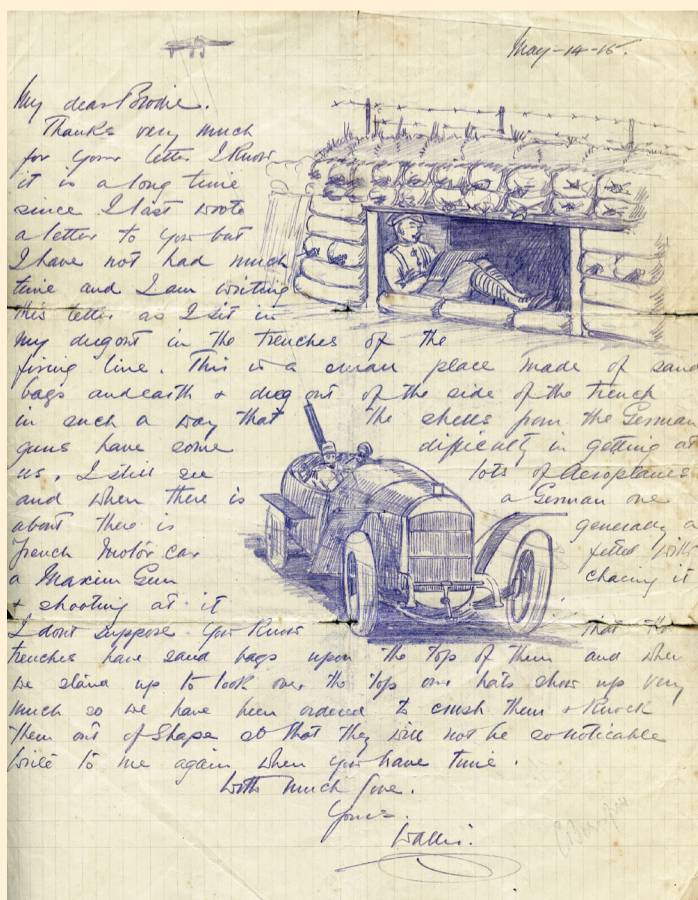 May-14-15.
My dear Brodie.
Thanks very much
for your letter I know
it is a long time
since I last wrote
a letter to you but
I have not had much
time and I am writing
this letter as I sit in
my dugout in the trenches of the
firing line. This is a small place made of sand
bags and earth & dug out of the side of the trench
in such a way that the shells from the German
guns have some difficulty in getting at
us. I still see lots of Aeroplanes
and when there is a German one
about there is generally a
French Motor car fitted with
a Maxim Gun chasing it
& shooting at it
I dont suppose you know that the
trenches have sand bags upon the top of them and when
we stand up to look over the top our hats show up very
much so we have been ordered to crush them & knock
them out of shape so that they will not be so noticable
write to me again when you have time.
With much love.
Yours.
Wallis.